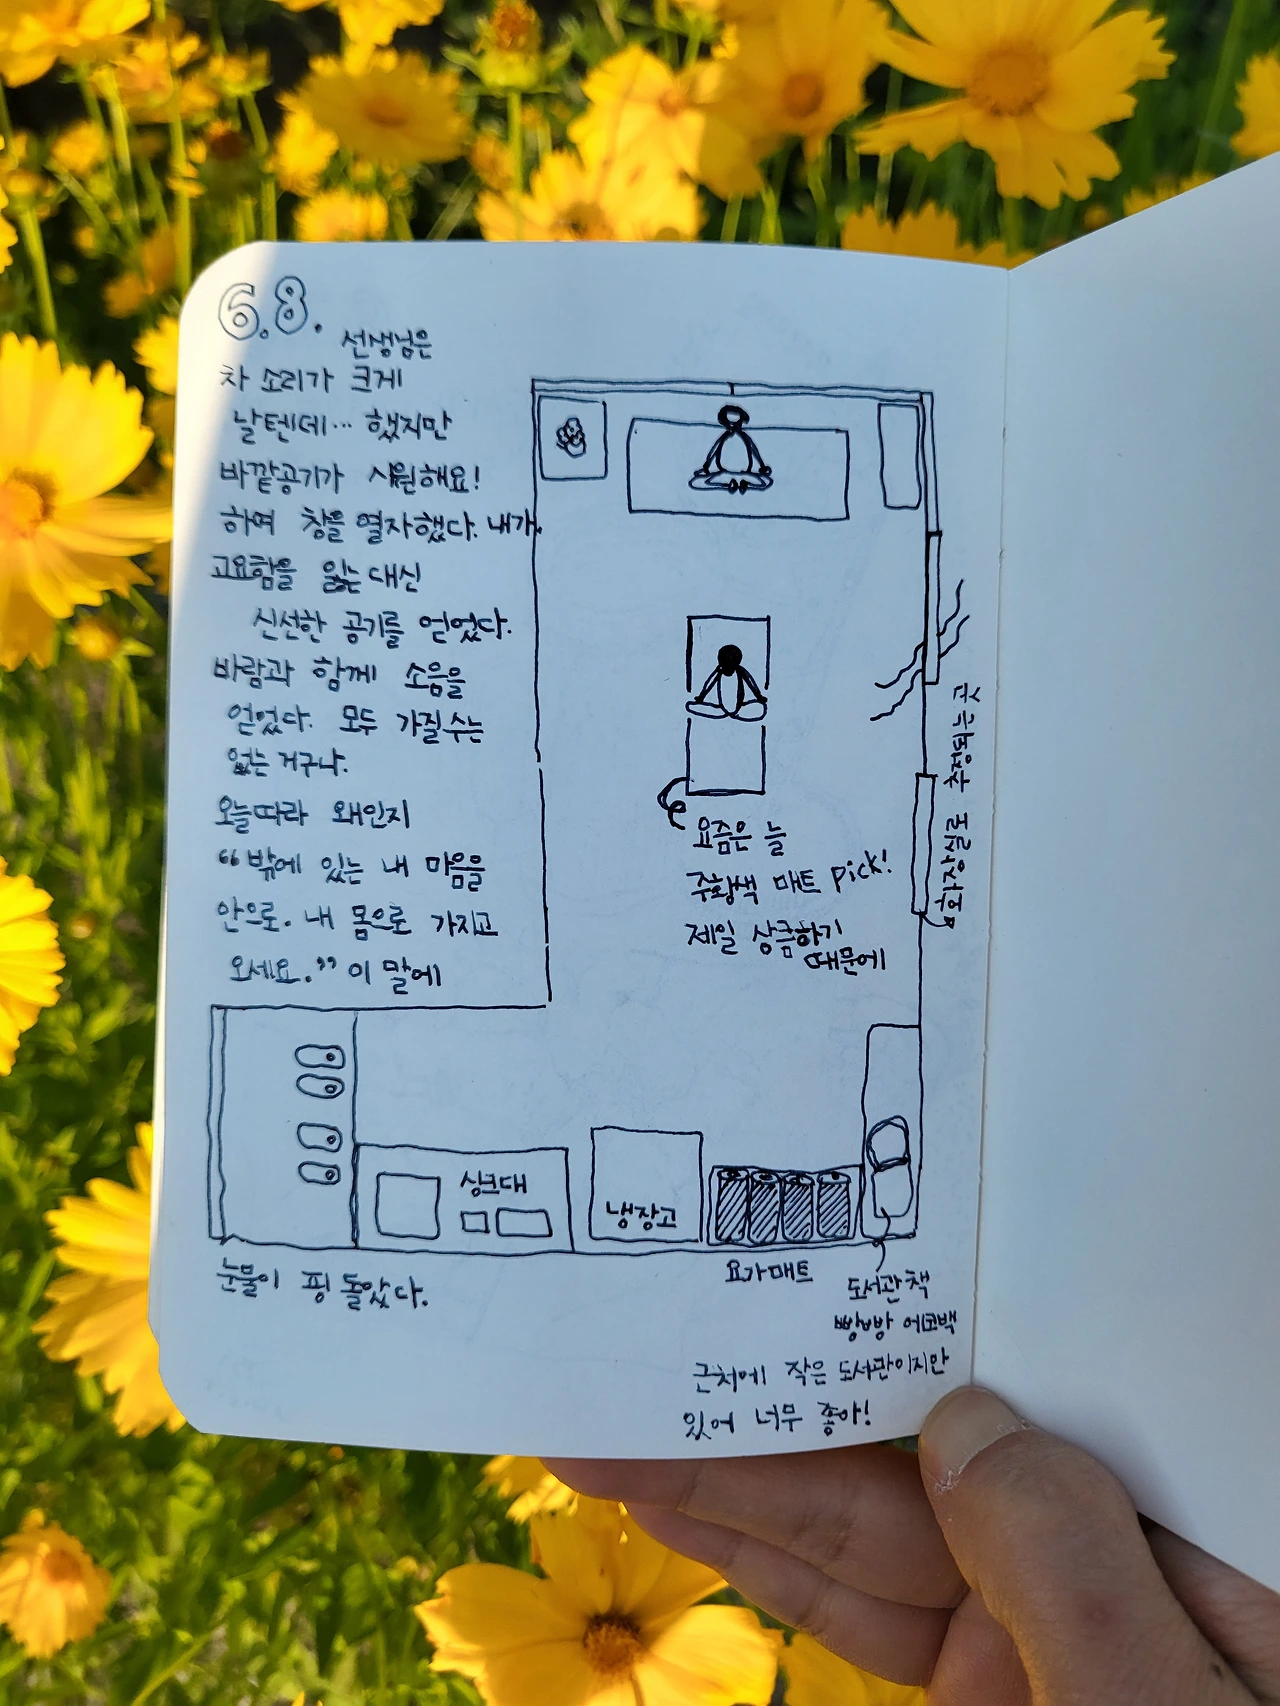 6.8.
선생님은
차 소리가 크게
날텐데… 했지만
바깥공기가 시원해요!
하여 창을 열자했다. 내가
고요함을 잃는 대신
신선한 공기를 얻었다.
바람과 함께 소음을
얻었다. 모두 가질수는
없는 거구나.
오늘따라 왜인지
“밖에 있는 내 마음을
안으로. 내 몸으로 가지고
오세요.” 이 말에
눈물이 핑 돌았다.
요즘은 늘
주황색 매트 pick!
제일 상큼하기
때문에
화장실로 추정되는 곳
싱크대
냉장고
요가매트
도서관 책
빵빵 에코백
근처에 작은 도서관이지만
있어 너무 좋아!